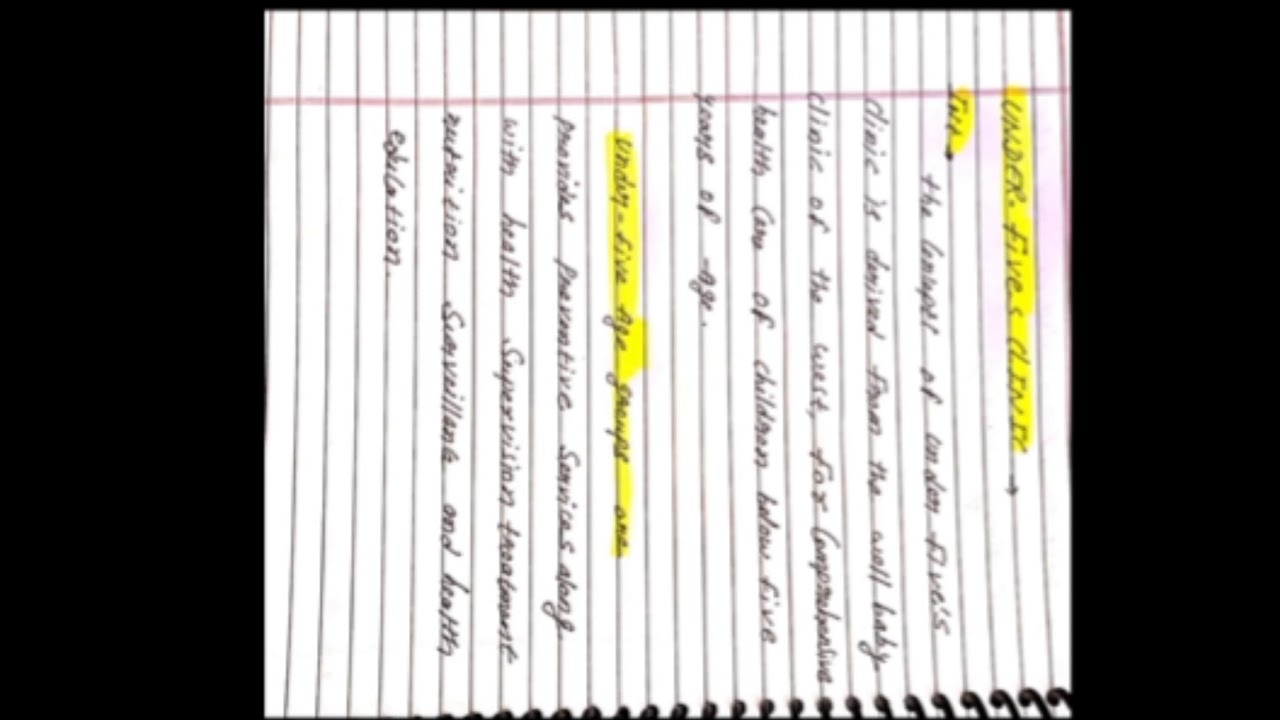 UNDER-fives CLINIC →
Int →
the concept of under five's
clinic is derived from the well baby
clinic of the west, for comprehensive
health care of children below five
years of -age.
Under-five Age groups are
provides preventive services along
with health supervision treatment
nutrition surveillance and health
education.